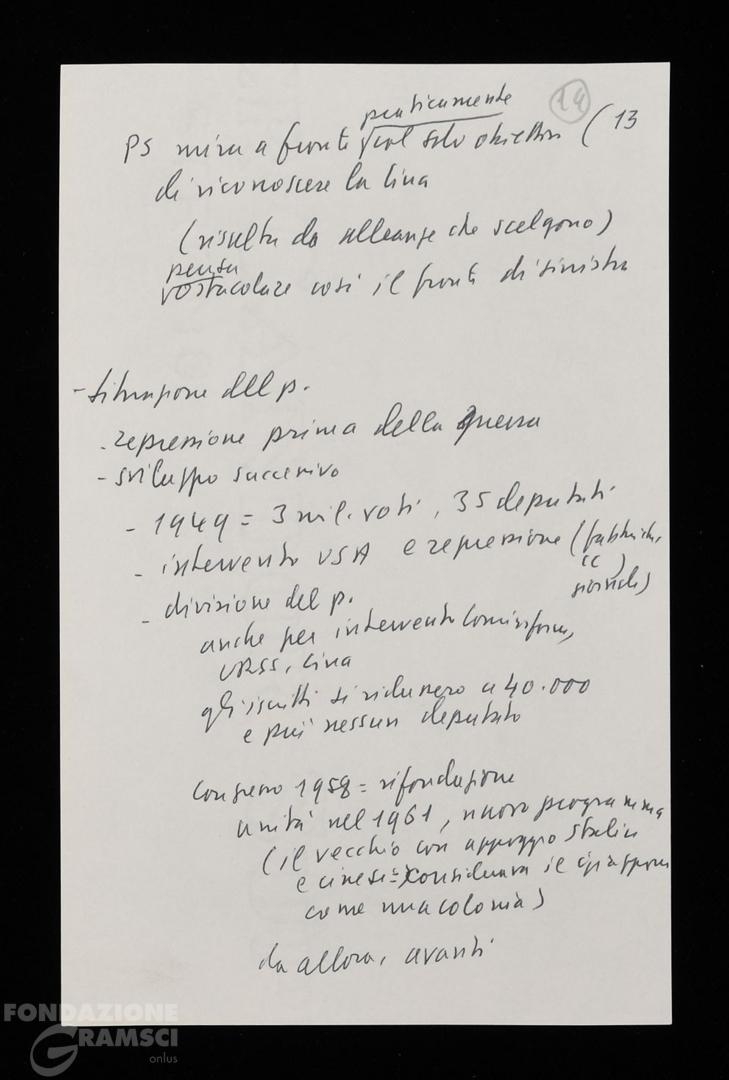 14
praticamente
PS mira a fronte √col solo obiettivo (13
di riconoscere la Cina
(risulta da alleanze che scelgono)
pensa
√ostacolare così il fronte di sinistra
- situazione del p.
- repressione prima della guerra
- sviluppo successivo
- 1949 = 3 mil. voti, 35 deputati
- intervento USA e repressione (fabbriche,
cc )
- divisione del p.
anche per intervento Cominform,
URSS, Cina
gli iscritti si ridussero a 40.000
e più nessun deputato
Congresso 1958 = rifondazione
unità nel 1961, nuovo programma
(il vecchio con appoggio Stalin
e cinesi =) considerava il Giappone
come una colonia)
da allora, avanti
FONDAZIONE
GRAMSCI
onlus